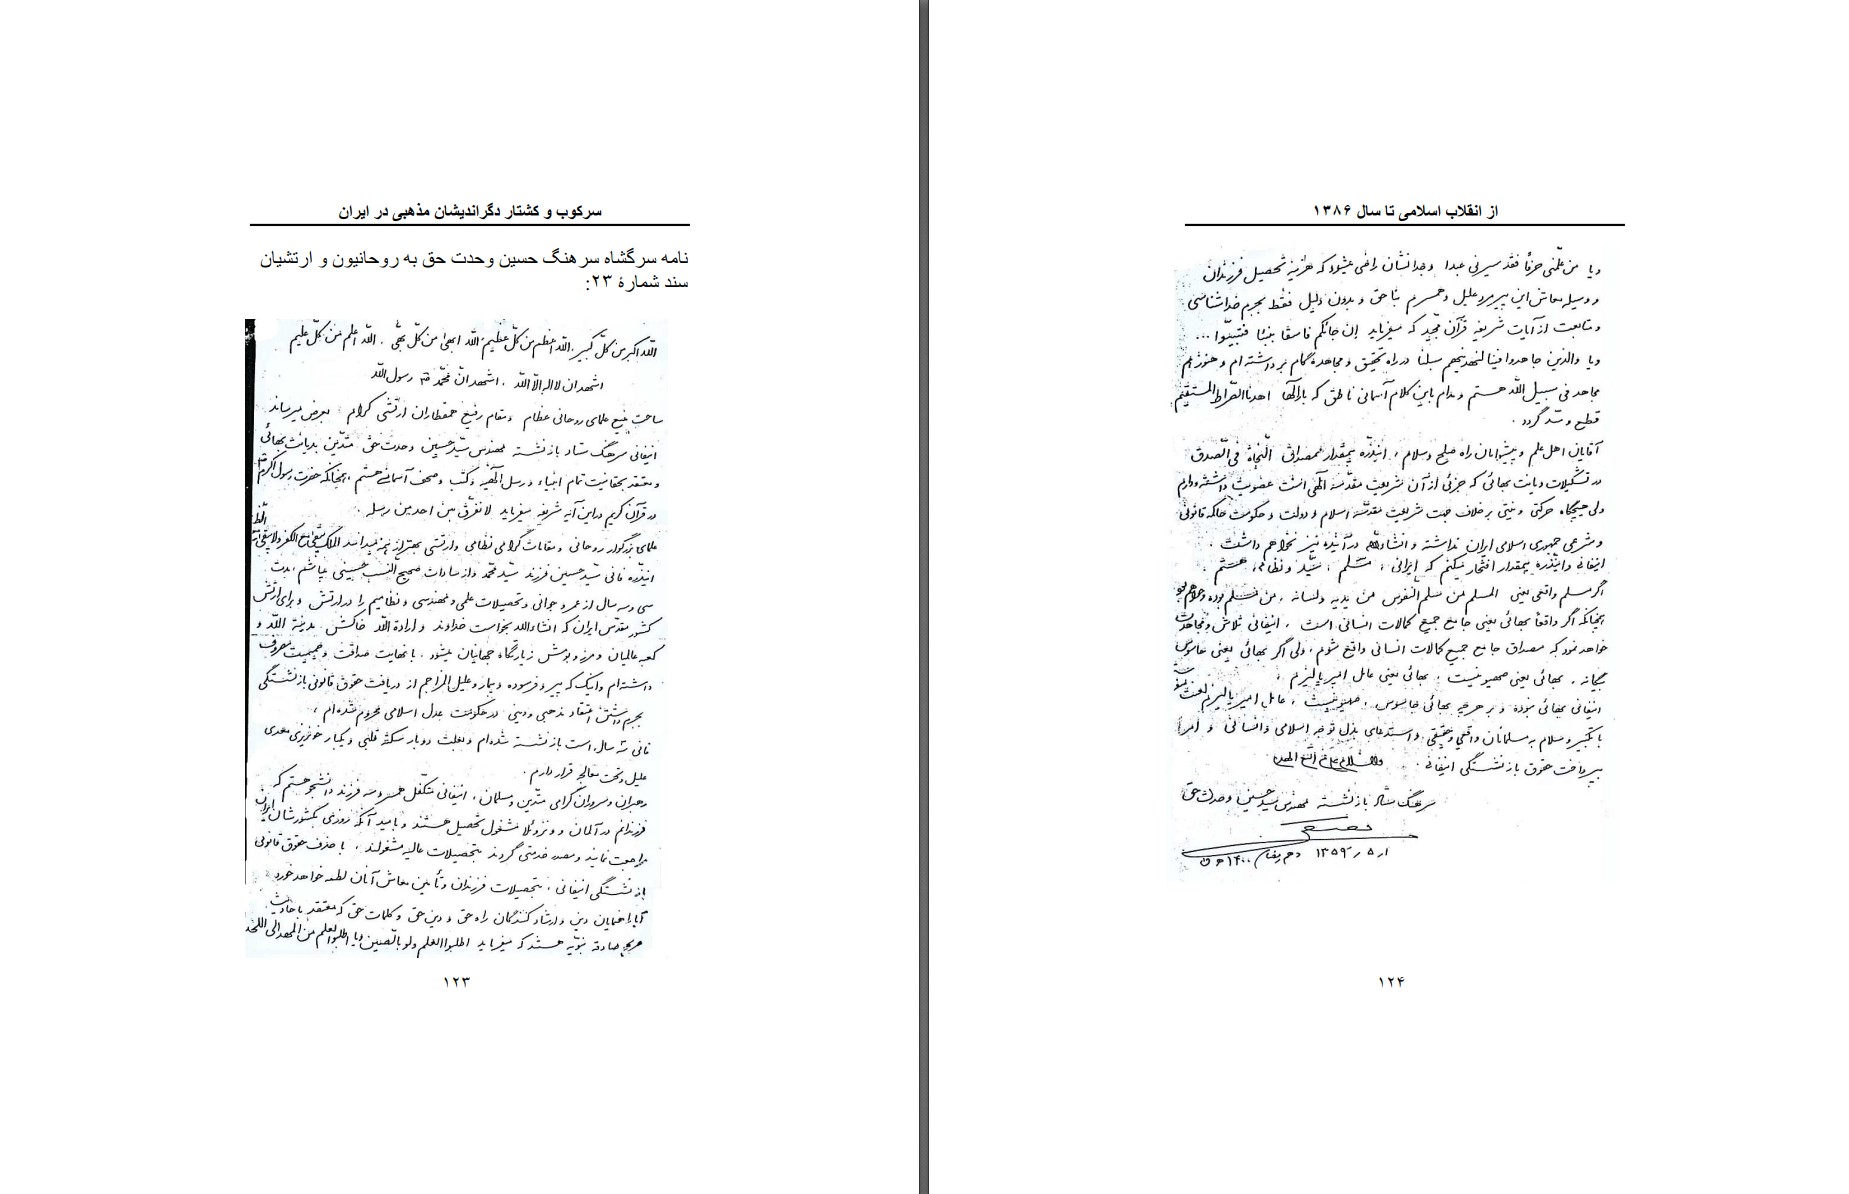 سرکوب و کشتار دگراندیشان مذهبی در ایران
نامه سرگشاه سرهنگ حسین وحدت حق به روحانیون و ارتشیان
سند شمارۀ ۲۳:
اللّه اکبر من کلّ کبیر، اللّه اعظم من کلّ عظیم، اللّه ابهی من کلّ بهیّ، اللّه اعلم من کلّ علیم
اشهد ان لا اله الّا اللّه، اشهد انّ محمّد رسول اللّه
ساحت منیع علمای روحانی عظام و مقام رفیع همقطاران ارتشی گرام، بعرض میرساند
اینفانی سرهنگ ستاد بازنشسته مهندس سیّد حسین وحدت حق متدّین بدیانت بهائی
و معتقد بحقانیت تمام انبیاء و رسل الهیّه و کتب و صحف آسمانی هستم، همچنانکه حضرت رسول اکرم
در قرآن کریم در این آیه شریفه میفرماید لا نفرّق بین احد من رسله.
علمای بزرگوار روحانی و مقامات گرامی نظامی و ارتشی بهتر از بنده میدانند الملک یبقی مع الکفر و لا یبقی مع
اینذره فانی سیّد حسین فرزند سیّد محمّد و از سادات صحیح النسب حسینی میباشم، مدت
سی و سه سال از عمر و جوانی و تحصیلات علمی و مهندسی و نظامیم را در ارتش و برای ارتش
کشور مقدّس ایران که انشاءالله بخواست خداوند و ارادة اللّه خاکش مدینة اللّه و
کعبه عالمیان و مرز و بومش زیارتگاه جهانیان میشود، با نهایت صداقت و صمیمیت مصروف
داشته‌ام و اینک که پیر و فرسوده و بیمار و علیل المزاجم از دریافت حقوق قانونی بازنشستگی
بجرم داشتن اعتقاد مذهبی و دینی در حکومت عدل اسلامی محروم شده‌ام،
سال است بازنشسته شده‌ام و بعلت دو بار سکته قلبی و یکبار خونریزی معدی
علیل و تحت معالجه قرار دارم.
رهبران و سروران گرامی متدّین و مسلمان، اینفانی متکفّل همسر و سه فرزند دانشجو هستم که
فرزندانم در آلمان و ونزوئلا مشغول تحصیل هستند و بامید آنکه روزی بکشورشان ایران
مراجعت نمایند و مصدر خدمتی گردند بتحصیلات عالیه مشغولند، با حذف حقوق قانونی
بازنشستگی اینفانی، بتحصیلات فرزندان و تأمین معاش آنان لطمه خواهد خورد
آیا راهنمایان دین و ارشاد کنندگان راه حق و دین حق و کلمات حق که معتقد باحادیث
صادقه نبویّه هستند که میفرماید اطلبوا العلم ولو بالصّین و یا اطلبوا العلم من المهد الی اللحد
۱۲۳
از انقلاب اسلامی تا سال ۱۳۸۶
و یا من علّمنی حرفاً فقد سیرنی عبدا وجدانشان راضی میشود که هزینه تحصیل فرزندان
و وسیله معاش این پیرمرد علیل و همسرم بنا حق و بدون دلیل فقط بجرم خداشناسی
و متابعت از آیات شریفه قرآن مجید که میفرماید إن جائکم فاسقاً بنبئا فتبیّنوا ...
و یا والذین جاهدوا فینا لنهدینهم سبلنا در راه تحقیق و مجاهده گام برداشته‌ام و هنوز هم
مجاهد فی سبیل اللّه هستم و مدام باین کلام آسمانی ناطق که بارالها اهدنا الصّراط المستقیم
قطع و سدّ گردد.
آقایان اهل علم و پیشوایان راه صلح و سلام، اینذره بیمقدار بمصداق النّجاة فی الصّدق
در تشکیلات دیانت بهائی که جزئی از آن شریعت مقدّسه الهی است عضویت داشته و دارم
ولی هیچگاه حرکتی و نیتی بر خلاف جهت شریعت مقدّسه اسلام و دولت و حکومت حاکمه قانونی
و مشرعی جمهوری اسلامی ایران نداشته و انشاءاللّه در آینده نیز نخواهم داشت.
اینفانی و اینذره بیمقدار افتخار میکنم که ایرانی، مسلم، سیّد و نظامی هستم.
اگر مسلم واقعی یعنی المسلم من سلم النفوس من یدیه و لسانه، من مسلم بوده و خواهم بود
همچنانکه اگر واقعاً بهائی یعنی جامع جمیع کمالات انسانی است، اینفانی تلاش و مجاهدت
خواهد نمود که مصداق جامع جمیع کمالات انسانی واقع شوم، ولی اگر بهائی یعنی جاسوس
بیگانه، بهائی یعنی صهیونیست، بهائی یعنی عامل امپریالیزم،
اینفانی بهائی نبوده و بر هر چه بهائی جاسوس، صهیونیست، عامل امپریالیزم لعنت
با تکبیر و سلام به مسلمانان واقعی و حقیقی و استدعای بذل توجه اسلامی و انسانی و امر
بپرداخت حقوق بازنشستگی اینفانی. والسّلام علی من اتّبع الهدی
سرهنگ ستاد بازنشسته مهندس سیّد حسین وحدت حق
۱ر۵ر۱۳۵۹ دهم رمضان ۱۴۰۰ ه ق
۱۲۴